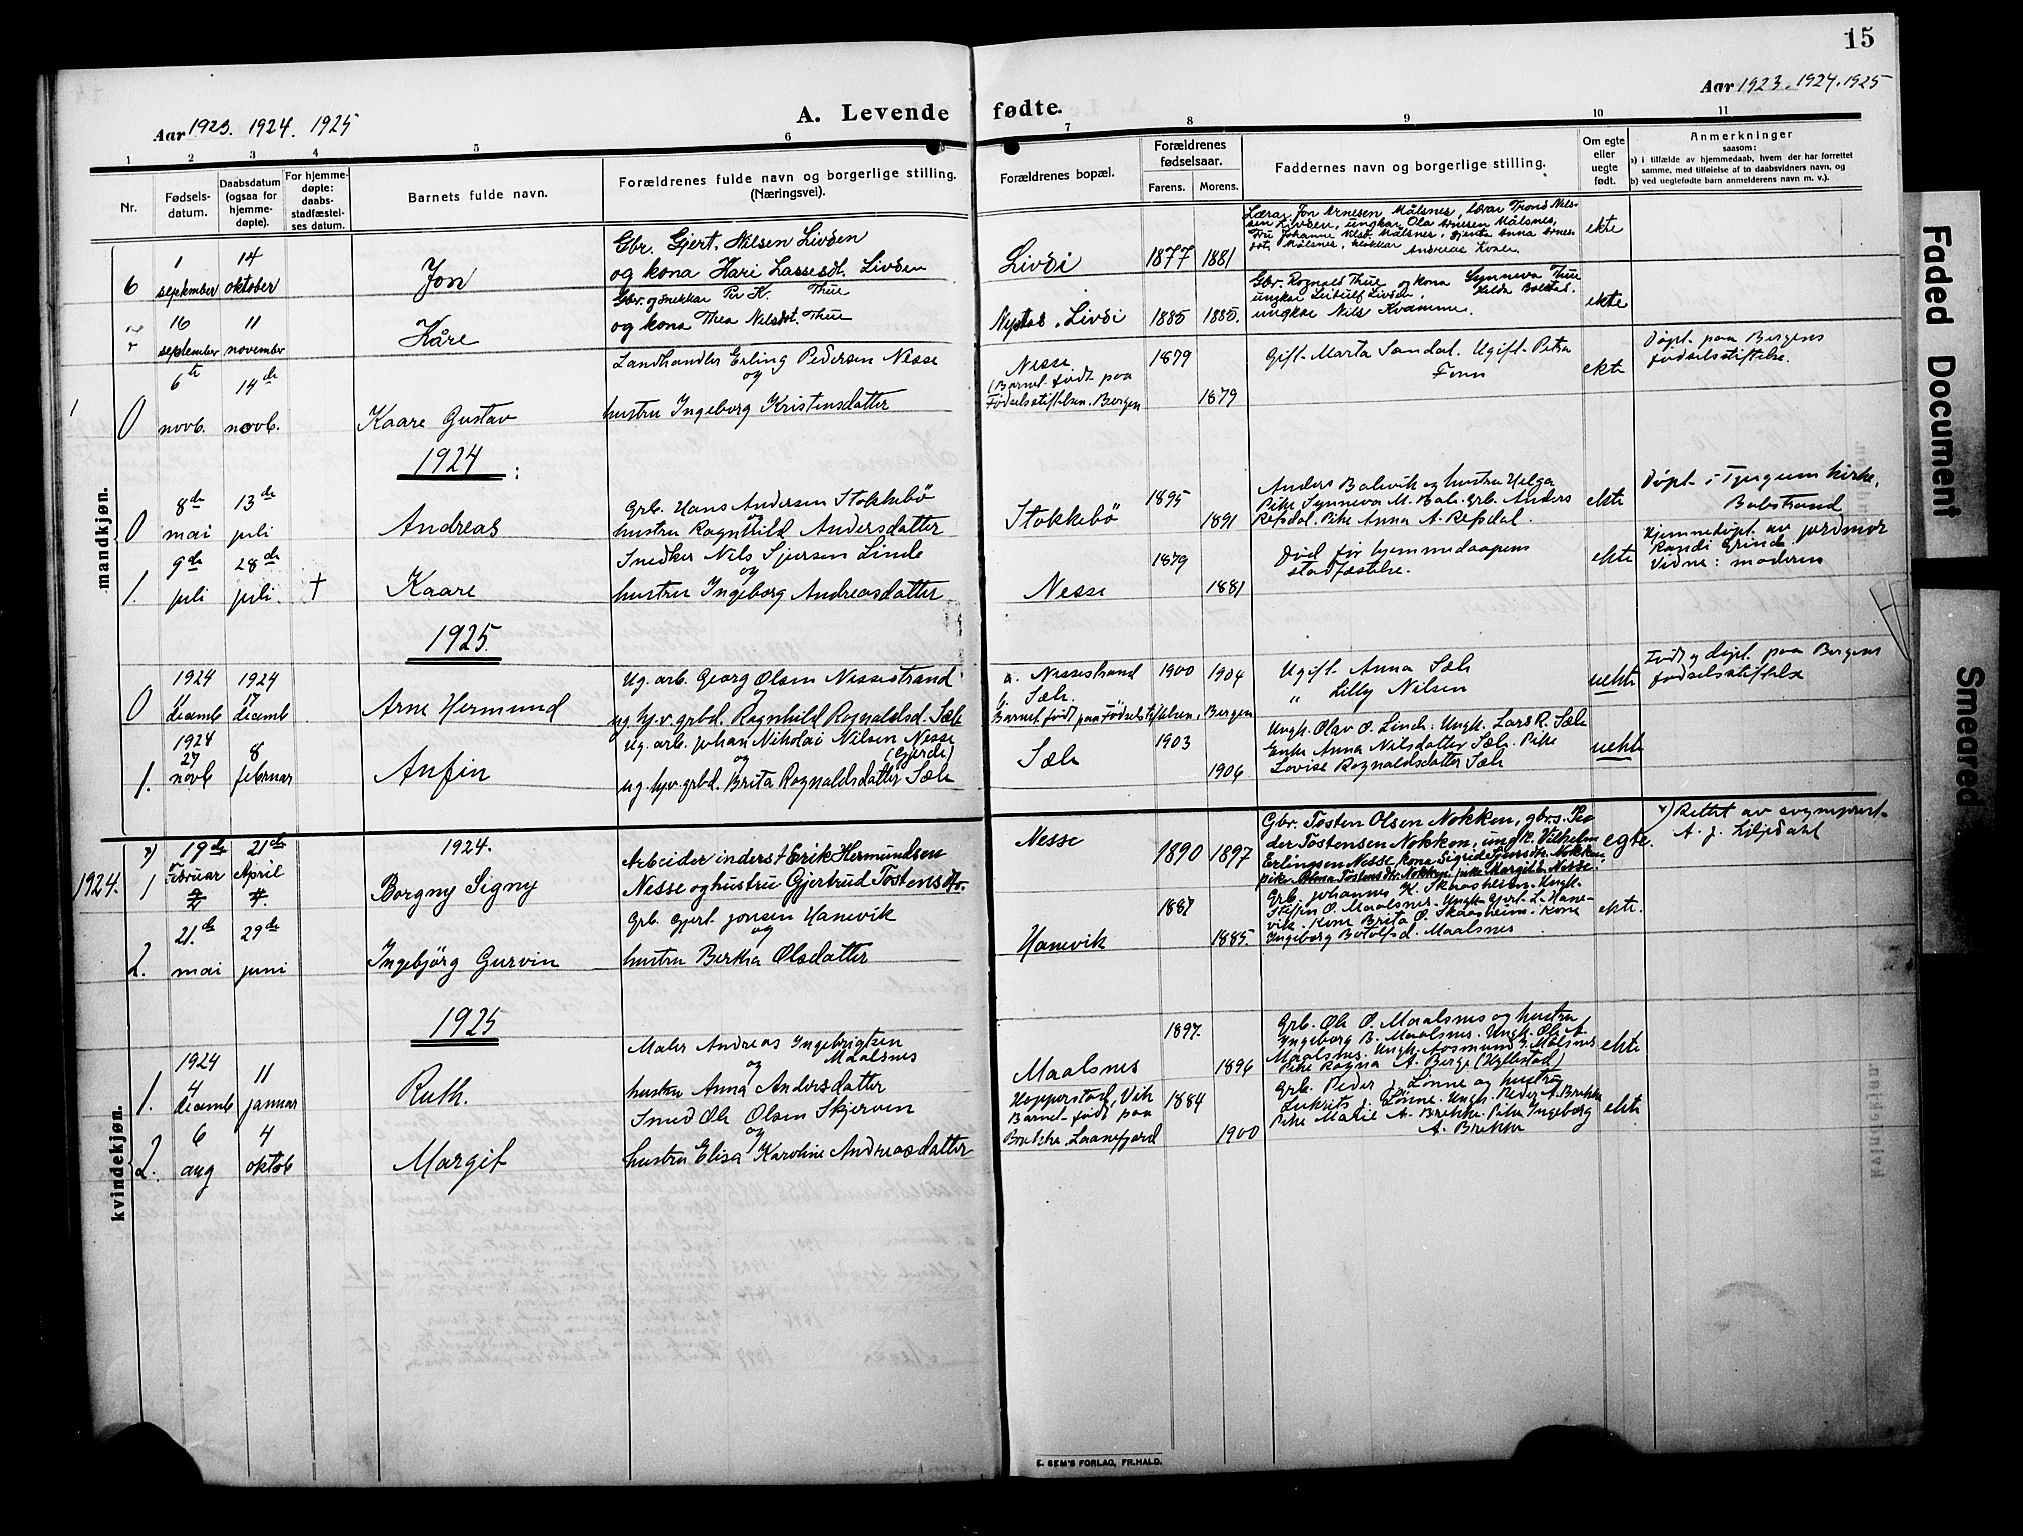 15
Aar 1923. 1924. 1925
A. Levende fødte.
Aar 1923. 1924. 1925
1 2 3 4 5 6 7 8 9 10 11
Nr.
Fødsels-
datum.
Daabsdatum
(ogsaa for
hjemme-
døpte).
For hjemme-
døpte:
daabs-
stadfæstel-
ses datum.
Barnets fulde navn.
Forældrenes fulde navn og borgerlige stilling.
(Næringsvei).
Forældrenes bopæl.
Forældrenes
fødselsaar.
Farens. Morens.
Faddernes navn og borgerlige stilling.
Om egte
eller
uegte
født.
Anmerkninger
saasom:
a) i tilfælde av hjemmedaab, hvem der har forrettet
samme, med tilføielse af to daabsvidners navn, og
b) ved uegtefødte barn anmelderens navn m. v.).
mandkjøn.
6
1
september
14
oktober
Jon
Gbr. Gjert. Nilsen Livden
og kona Kari Lassesdt. Livden
Livdi
1877 1881
Lærar Jon Arnesen Målsnes, lærar Trond Nils-
sen Livden, ungkar Ola Arnesen Målsnes,
Fru Johanne Nilsd. Målsnes, gjenta Anna Arnes-
dot. Målsnes, klokkar Andreas Kvale
ekte
7
16
september
11
november
Kåre
Gbr. og snekkar Per K. Thue
og kona Thea Nilsdot. Thue
Neptos, Livdi
1885 1885.
Gbr. Rognald Thue og kona Synneva Thue
ungkar Leidulf Livden, Kilda Bolstad.
ungkar Nils Kvamme.
ekte
0
6te
novb.
14de
novb.
Kaare Gustav
Landhandler Erling Pedersen Nesse
og
hustru Ingeborg Kristensdatter
Nesse
(Barnet født paa
Fødselsstiftelsen. Bergen
1879
1879
Gift. Marta Sandal. Ugift. Petra
Fonn
ekte
Døpt paa Bergens
fødselsstiftelse.
1924:
0
8de
mai
13de
juli
Andreas
Grb. Hans Andersen Stokkebö
og
hustru Ragnhild Andersdatter
Stokkebö
1895
1891
Anders Balevik og hustru Helga
Pike Synneva M. Bale. Grb. Anders
Refsdal. Pike Anna A. Refsdal.
ekte
Døpt i Tjugum kirke,
Balestrand
1.
9de
juli
28de
juli.
+
Kaare
Snedker Nils Sjursen Linde
og
hustru Ingeborg Andreasdatter
Nesse
1879
1881
Död för hjemmedaapens
stadfæstelse.
ekte
Hjemmedøpt av jordmor
Randi Grinde
Vidne: moderen
1925.
0
1924
11
decemb
1924
17
decemb
Arne Hermund
Ug. arb. Georg Olsen Nessestrand
og
ug. hjv. grbd. Ragnhild Rognaldsd. Sæle
a. Nessestrand
b. Sæle.
Barnet født paa Fødselsstiftelsen, Bergen
1900 1904
Ugift. Anna Sæle
" Lilly Nilsen
uekte
Født og døpt paa Bergens
fødselsstiftelse
1.
1924
27
novb
8
februar
Anfin
Ug. arb. Johan Nikolai Nilsen Nesse
og (Gjerde)
ug. hjv. grbd. Brita Rognaldsdatter Sæle
Sæle
1903
1906
Ungk. Olav O. Linde. Ungk. Lars R. Sæle
Enke Anna Nilsdatter Sæle. Pike
Lovise Rognaldsdatter Sæle
uekte
kvindekjøn.
1924.
x)
1
19de
Februar
21de
April
1924.
Borgny Signy
Arbeider inderst Erik Hermundsen
Nesse og hustru Gjertrud Tostensdtr.
Nesse
1890 1897
Gbr. Tosten Olsen Nokken, gbr.s. Peo-
der Tostensen Nokken, ungk. Vilhelm
Erlingsen Nesse, kona Sigrid Nokken
pike Margit Nesse.
egte.
x) Rettet av sogneprest
A. J. Liljedahl
2.
21.de
mai
29de
juni
Ingebjörg Gurvin
Grb. Gjert Jonsen Hanevik
og
hustru Bertha Olsdatter
Hanevik
1887
1885.
Grb. Johannes K. Skaasheim. Ungk.
Steffen O. Maalsnes. Ungk. Gjert L. Hane-
vik. Kone Brita O. Skaasheim. Kone
Ingeborg Botolfsd. Maalsnes
ekte.
1925
1.
1924
4
decemb
11
januar
Ruth.
Maler Andreas Ingebrigtsen
og Maalsnes
hustru Anna Andersdatter
Maalsnes
1897.
1896
Grb. Ole O. Maalsnes og hustru
Ingeborg B. Maalsnes. Ungk. Ole A.
Maalsnes. Ungk. Aasmund G. Målsnes
Pike Ragna A. Berge (Hyllestad)
ekte
2.
6
aug
4
oktob
Margit
Smed Ole Olsen Skjerven
og
hustru Elisa Karoline Andreasdatter
Hopperstad, Vik
Barnet født paa
Brekke, Laanefjord
1884
1900
Grb. Peder J. Lönne og hustru
Lukrits J. Lönne. Ungk. Peder A. Brekke
Pike Marie A. Brekke. Pike Ingeborg
A. Brekke
ekte
E. SEM'S FORLAG, FR.HALD.
Faded Document
Smeared